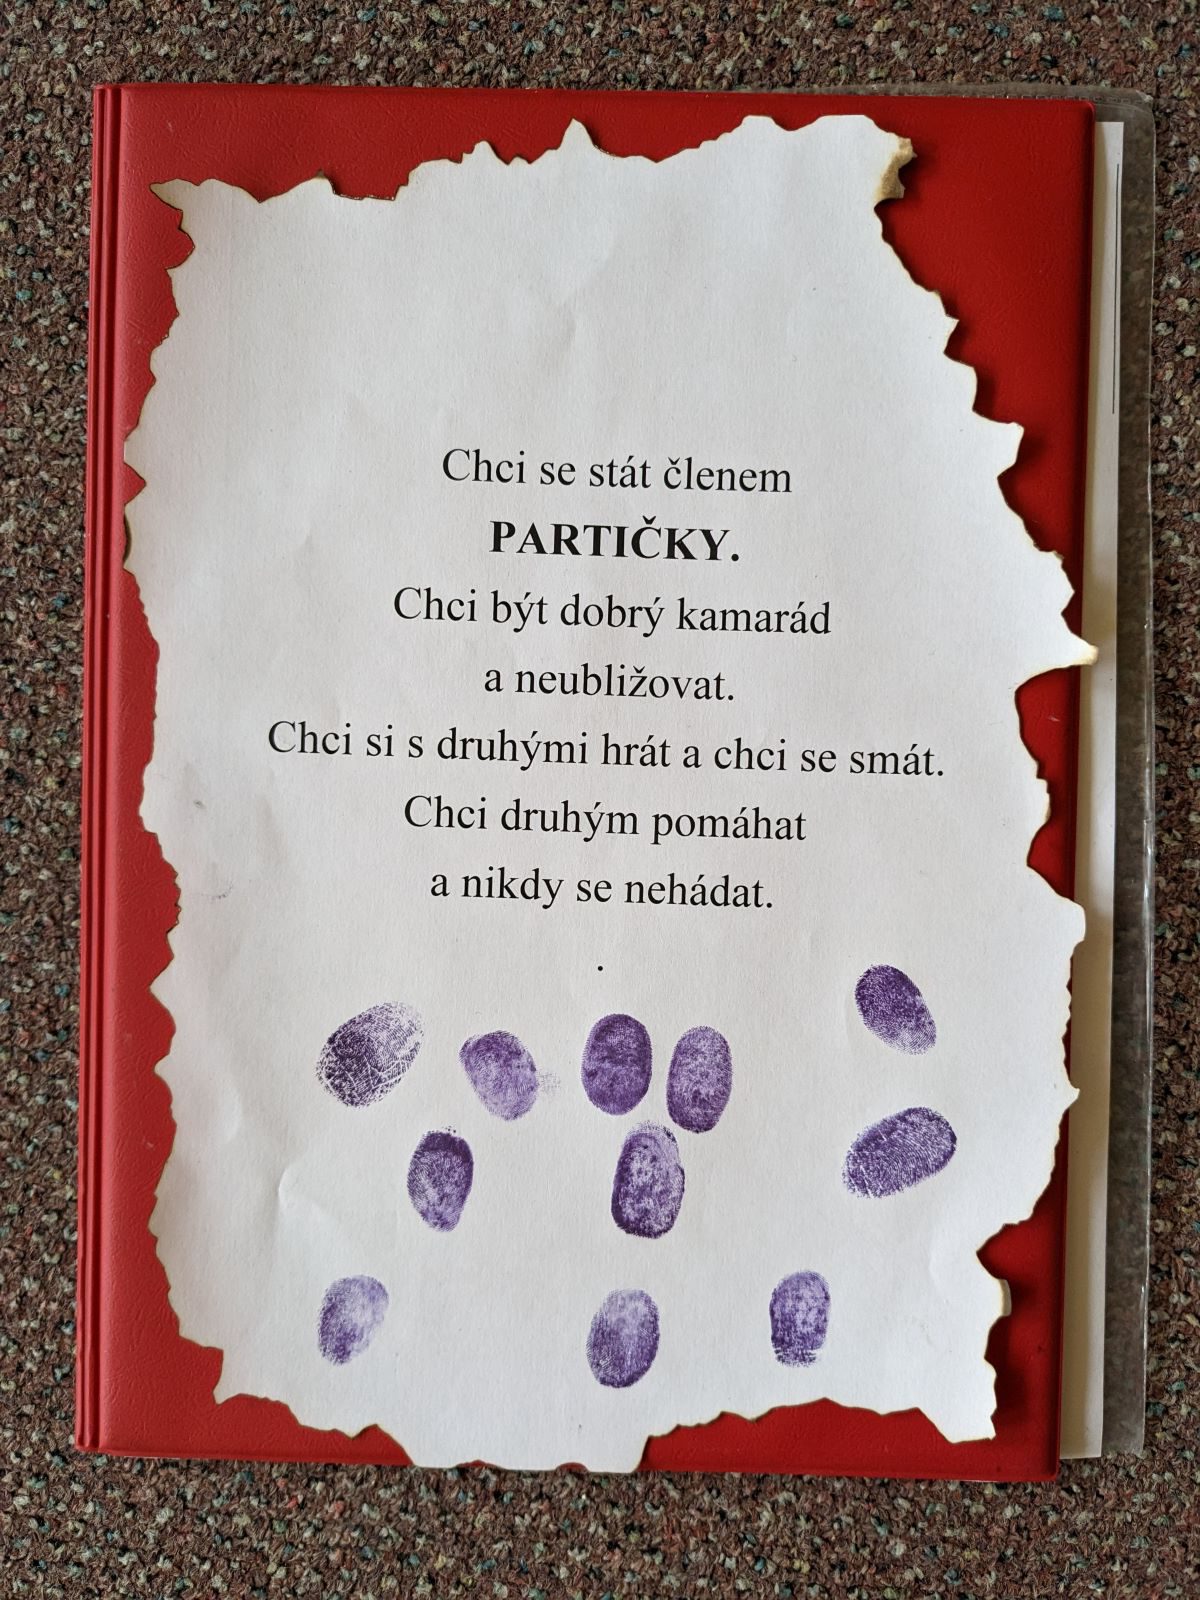 Chci se stát členem
PARTIČKY.
Chci být dobrý kamarád
a neubližovat.
Chci si s druhými hrát a chci se smát.
Chci druhým pomáhat
a nikdy se nehádat.
.